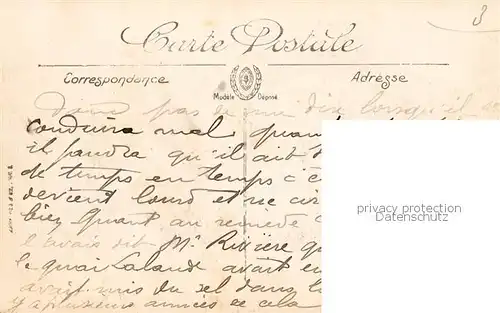 3
Carte Postale
Correspondance
Adresse
Modèle Déposé
pas je me dis lorsqu'il
conduira mal quan
il faudra qu'il ait
de temps en temps c'e
devient lourd et ne cir
bien. Quant au remède
l'avais dit. Mr. Rivière qu
le quai Lalande avait en
avait mis du sel dans l
y a plusieurs années de cela
privacy protection
Datenschutz